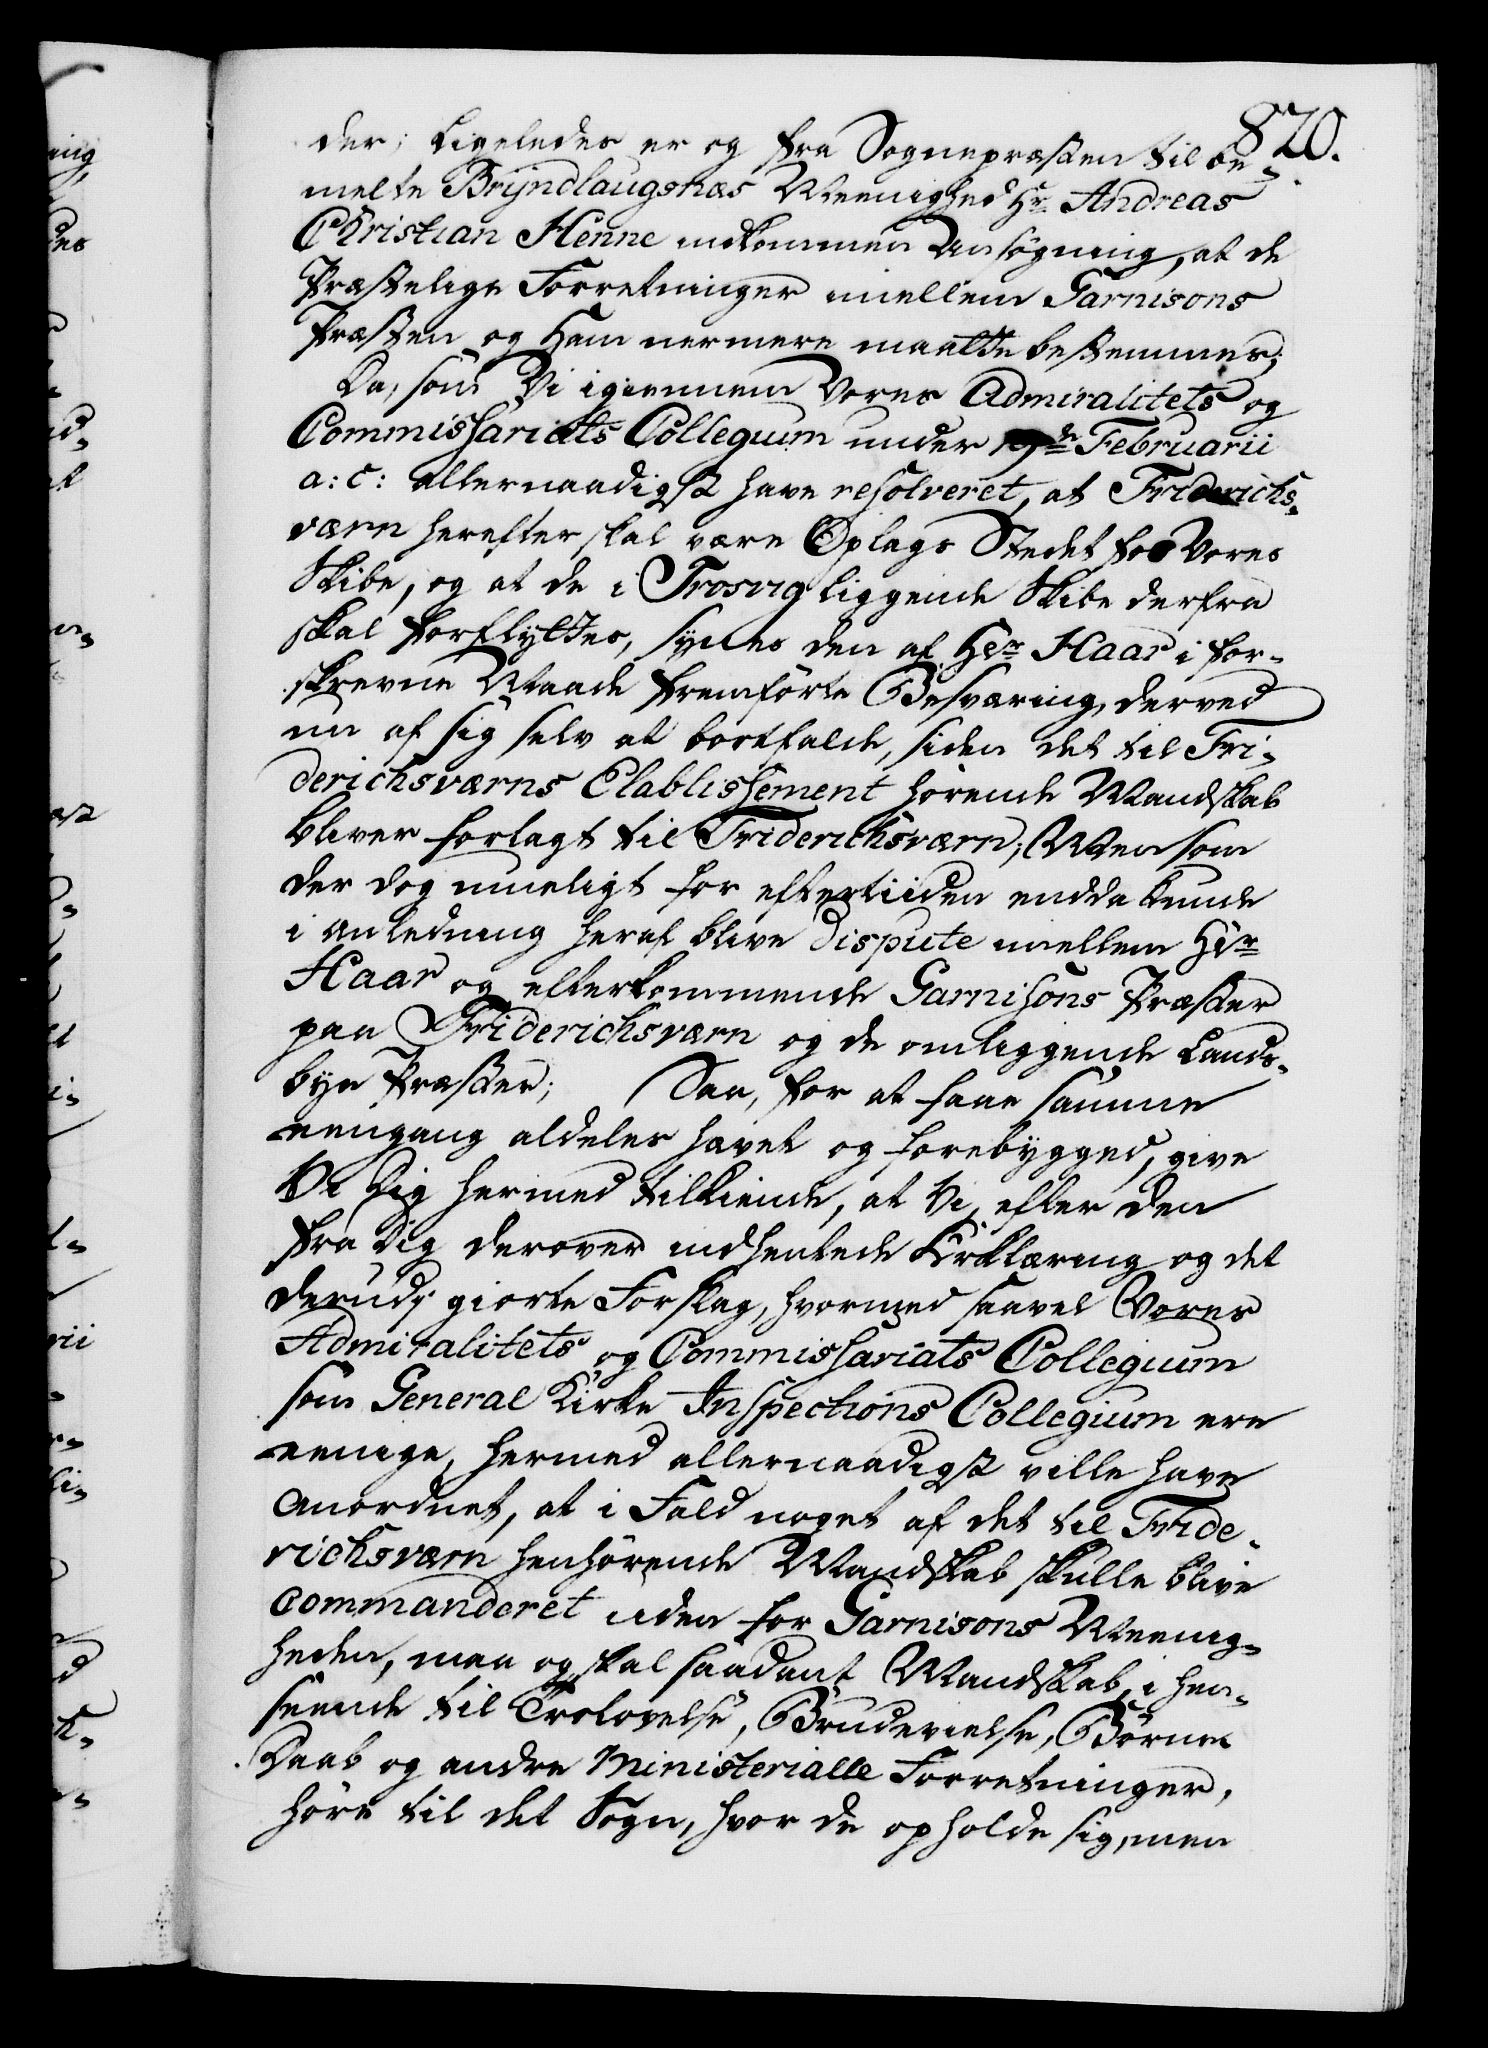 820.
der; Ligeledes er og fra Sognepræsten til be-
melte Brÿndlaugsnæs Meenighed Hr. Andreas
Christian Henne indkommen Ansøgning, at de
Præstelige Forretninger imellem Garnisons
Præsten og Ham nermere maatte bestemmes;
Da, som Vi igiennem Vores Admiralitets og
Commissariats Collegium under 19de Februarii
a: c: allernaadigst have resolveret, at Friderichs-
værn herefter skal være Oplags Stedet for Vores
Skibe, og at de i Trosvig liggende Skibe derfra
skal forflyttes, synes den af Hr Haar i for-
skrevne Maade fremførte Besværing, derved
nu af sig selv at bortfalde, siden det til Fri-
derichsværns Etablissement hørende Mandskab
bliver forlagt til Friderichsværn; Men som
der dog mueligt for eftertiiden endda kunde
i Anledning heraf blive dispute imellem Hr
Haar og efterkommende Garnisons Præster
paa Friderichsværn og de omliggende Lands-
bye Præster; Saa, for at faae samme
eengang aldeles hævet og forebygged, give
Vi Dig hermed tilkiende, at Vi, efter den
fra Dig derover indhentede Erklæring og det
derudj giorte Forslag, hvormed saavel Vores
Admiralitets og Commissariats Collegium
som General Kirke Inspections Collegium ere
eenige, hermed allernaadigst ville have
anordnet, at i Fald noget af det til Fride-
richsværn henhørende Mandskab skulle blive
commanderet uden for Garnisons Meenig-
heden, maa og skal saadant Mandskab, i hen-
seende til Trolovelse, Brudevielse, Børne
Daab og andre Ministerialle Forretninger,
høre til det Sogn, hvor de opholde sig, men